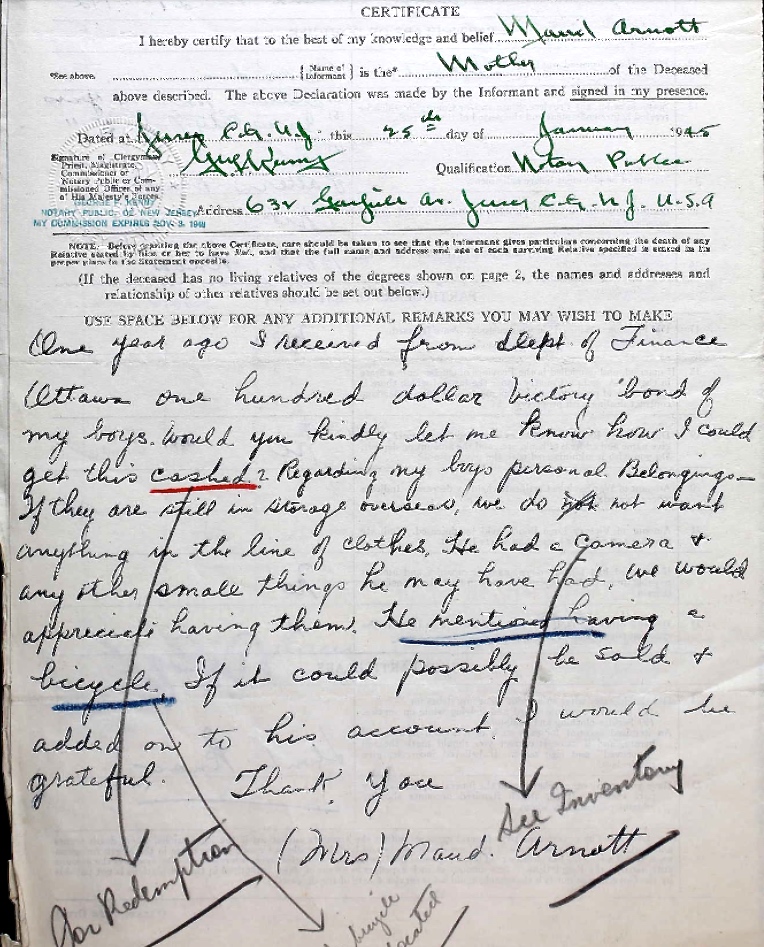 CERTIFICATE
I hereby certify that to the best of my knowledge and belief Maud Arnott
*See above {Name of Informant} is the* Mother of the Deceased
above described. The above Declaration was made by the Informant and signed in my presence.
Dated at Jersey C.G. N.J. this 25th day of January 1945
Signature of Clergyman,
Priest, Magistrate,
Commissioner of
Notary Public or Com-
missioned Officer of any
of His Majesty's Forces.
Qualification Notary Public
NOTARY PUBLIC OF NEW JERSEY
MY COMMISSION EXPIRES NOV. 3,
Address 632 Av. Jersey C.G. N.J. U.S.A
NOTE: Before signing the above Certificate, care should be taken to see that the Informant gives particulars concerning the death of any
Relative stated by him or her to have died, and that the full name and address and age of each surviving Relative specified is stated in its
proper place in the Statement opposite.
(If the deceased has no living relatives of the degrees shown on page 2, the names and addresses and
relationship of other relatives should be set out below.)
USE SPACE BELOW FOR ANY ADDITIONAL REMARKS YOU MAY WISH TO MAKE
One year ago I received from Dept. of Finance
Ottawa one hundred dollar Victory bond of
my boys. Would you kindly let me know how I could
get this cashed? Regarding my boys personal Belongings—
If they are still in storage overseas, we do not not want
anything in the line of clothes. He had a camera &
any other small things he may have had, we would
appreciate having them. He mentioned having a
bicycle. If it could possibly be sold &
added on to his account, I would be
grateful. Thank You
See Inventory
(Mrs) Maud. Arnott
For Redemption
bicycle
located